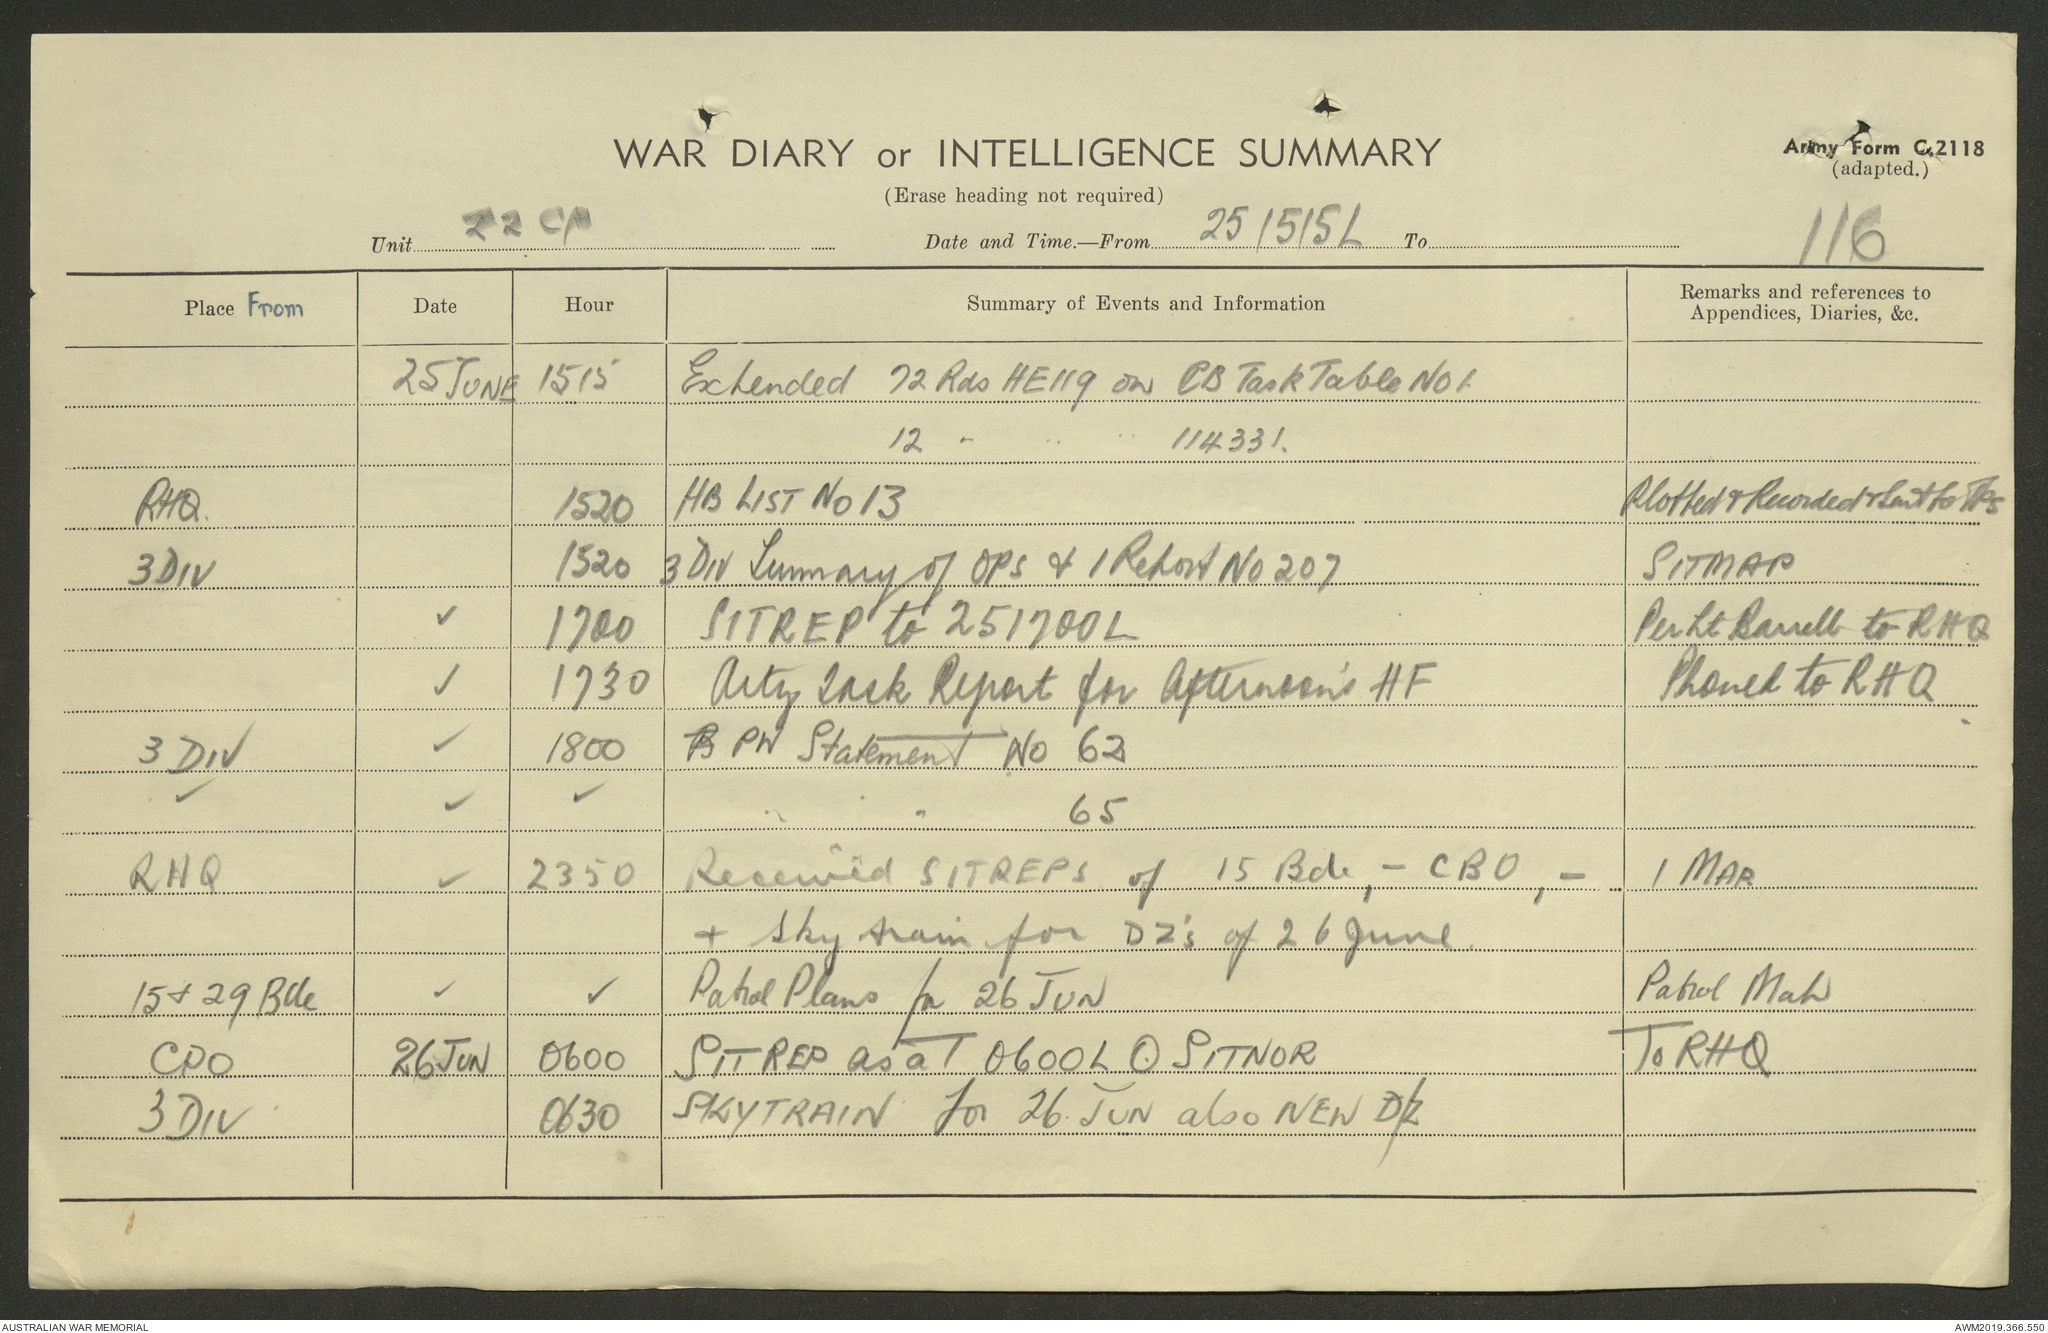 WAR DIARY or INTELLIGENCE SUMMARY
(Erase heading not required)
Army Form C.2118
(adapted.)
116
Unit 22 CP Date and Time.—From 251515L To
Place From Date Hour Summary of Events and Information Remarks and references to Appendices, Diaries, &c.
25 JUNE 1515 Expended 72 Rds HE119 on CB Task Table No 1.
12 " " " 114331.
RHQ. 1520 HB LIST No 13 Plotted & Recorded & Sent to Tps
3 DIV 1520 3 DIV Summary of OPS & I Report No 207 SITMAP
✓ 1700 SITREP to 251700L Per Lt Barrell to RHQ
✓ 1730 Arty Task Report for Afternoon's HF Phoned to RHQ
3 DIV ✓ 1800 PW Statement No 62
✓ ✓ ✓ " " 65
RHQ ✓ 2350 Received SITREPS of 15 Bde, - CBO, - 1 MAR
+ Sky train for DZ's of 26 June.
15 + 29 Bde ✓ ✓ Patrol Plans for 26 JUN Patrol Map
CPO 26 JUN 0600 SITREP as at 0600L O SITNOR To RHQ
3 DIV 0630 SKYTRAIN for 26 JUN also NEW D/Z
AUSTRALIAN WAR MEMORIAL
AWM2019.366.550